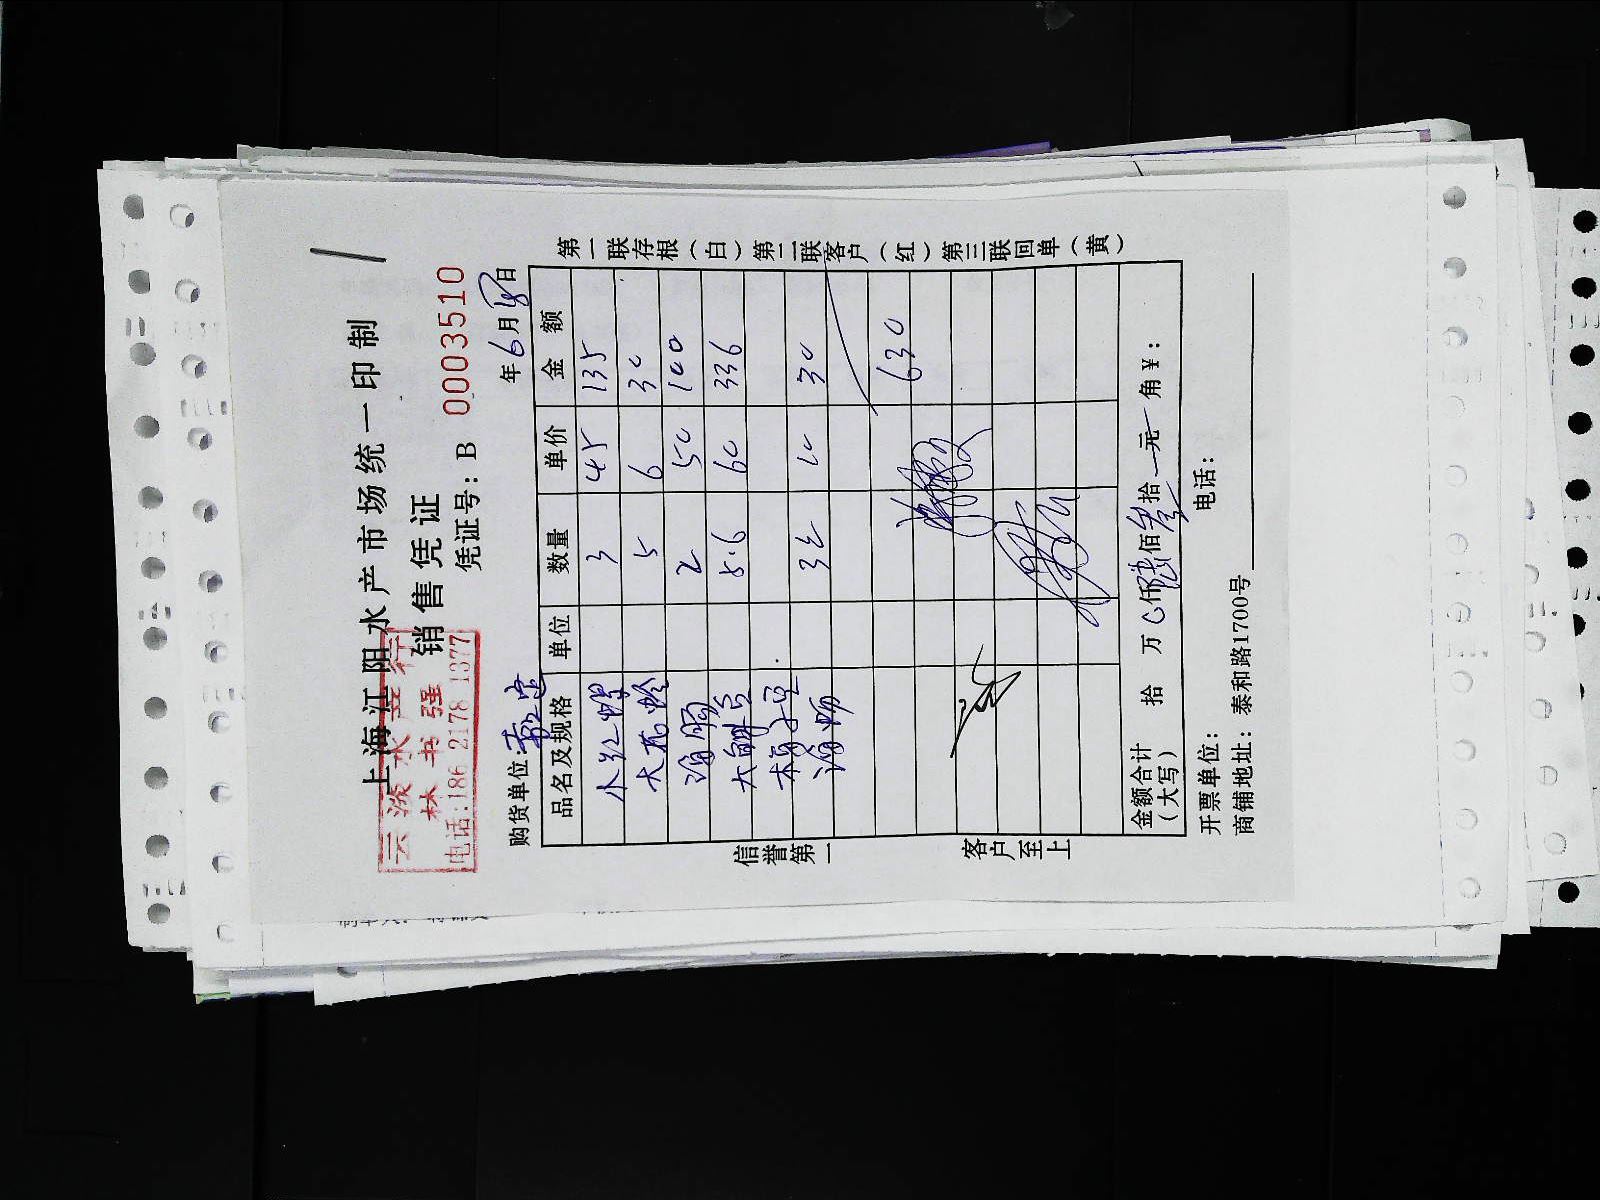 上海江阳水产市场统一印制
销售凭证
云淡水产行
林书强
电话:186 2178 1377
凭证号: B 0003510
购货单位:
年 6 月 18 日
品名及规格 单位 数量 单价 金额
小红虾 3 45 135
大花蛤 5 6 30
2 50 100
大 5.6 60 336
3 10 30
630
金额合计(大写) 拾 万 0 仟 陆 佰 叁 拾 元 角 ¥:
开票单位: 电话:
商铺地址: 泰和路1700号
信誉第一 客户至上
第一联存根(白)第二联客户(红)第三联回单(黄)